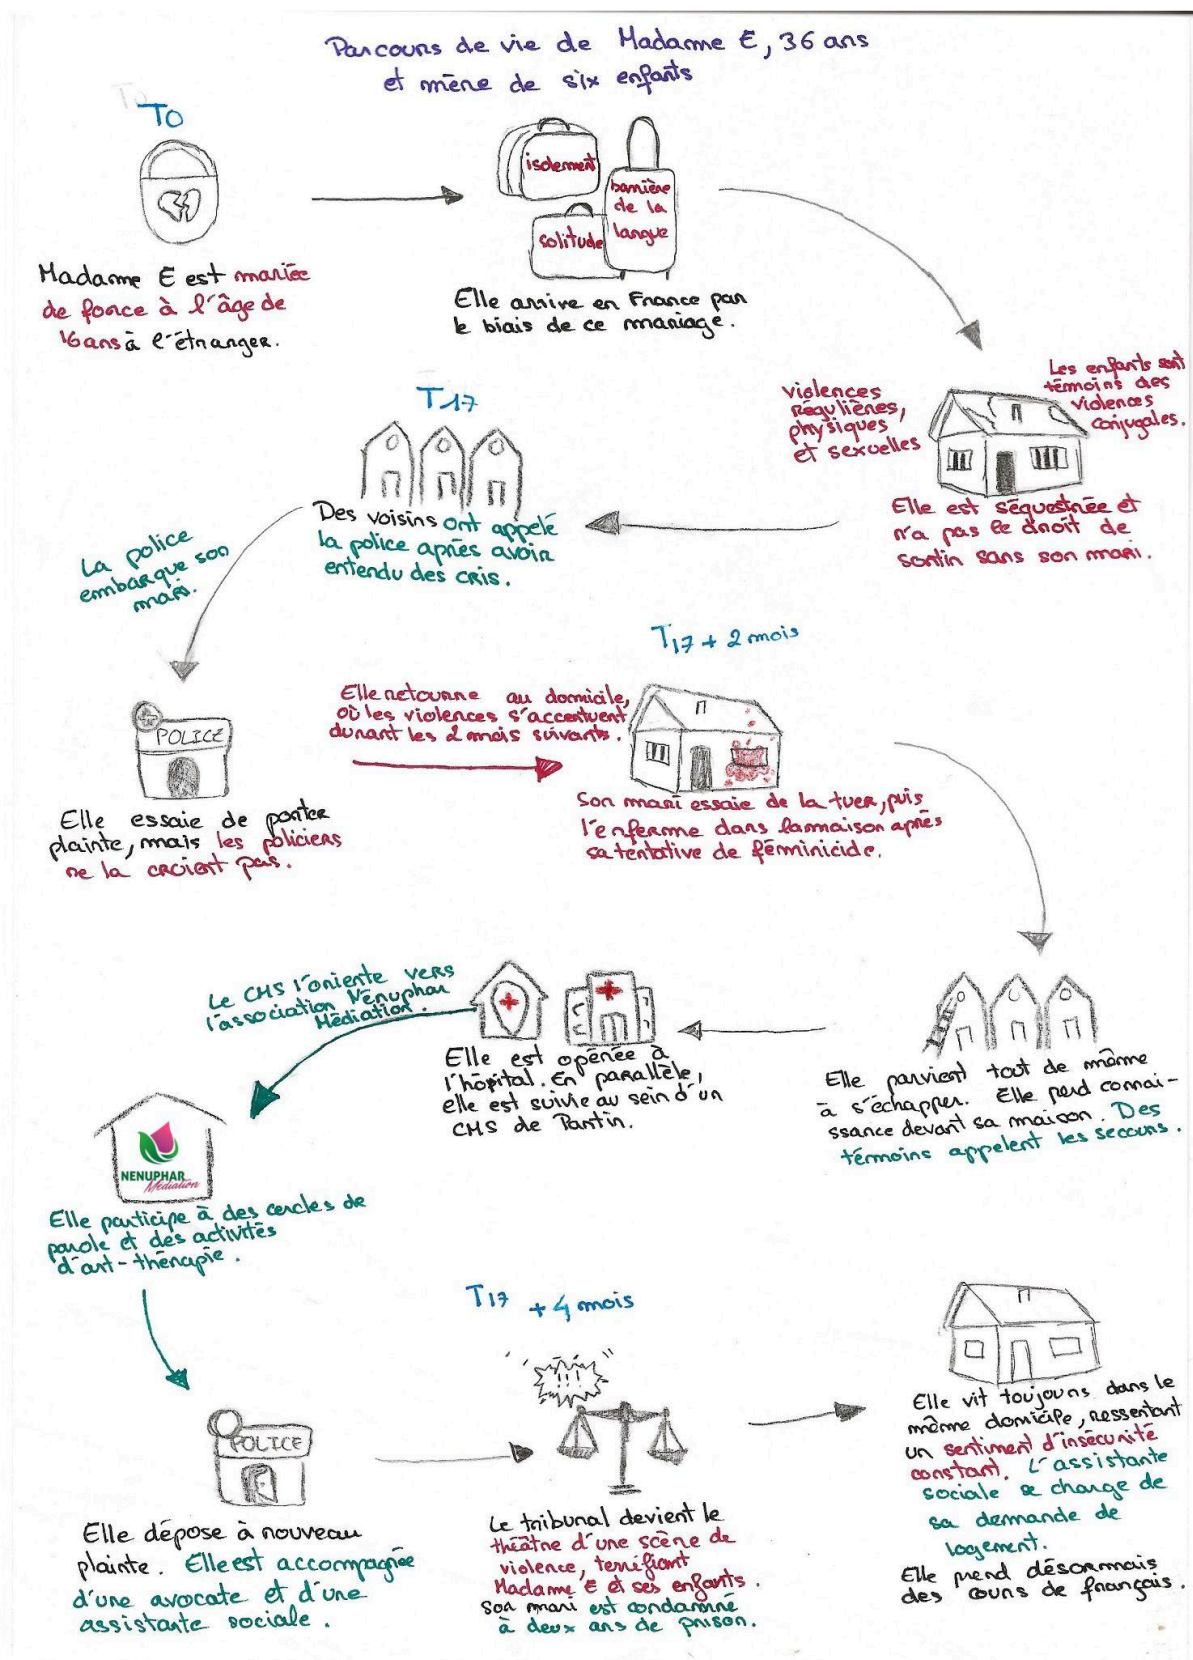 Parcours de vie de Madame E, 36 ans
et mère de six enfants
T0
isolement
barrière
de la
langue
solitude
Madame E est mariée
de force à l'âge de
16 ans à l'étranger.
Elle arrive en France par
le biais de ce mariage.
violences
régulières,
physiques
et sexuelles
Les enfants sont
témoins des
violences
conjugales.
Elle est séquestrée et
n'a pas le droit de
sortir sans son mari.
T17
Des voisins ont appelé
la police après avoir
entendu des cris.
La police
embarque son
mari.
POLICE
Elle essaie de porter
plainte, mais les policiers
ne la croient pas.
Elle retourne au domicile,
où les violences s'accentuent
durant les 2 mois suivants.
T17 + 2 mois
Son mari essaie de la tuer, puis
l'enferme dans la maison après
sa tentative de féminicide.
Elle parvient tout de même
à s'échapper. Elle perd connai-
ssance devant sa maison. Des
témoins appelent les secours.
Elle est opérée à
l'hôpital. En parallèle,
elle est suivie au sein d'un
CMS de Pantin.
Le CMS l'oriente vers
l'association Nénuphar
Médiation.
NENUPHAR
Médiation
Elle participe à des cercles de
parole et des activités
d'art-thérapie.
POLICE
Elle dépose à nouveau
plainte. Elle est accompagnée
d'une avocate et d'une
assistante sociale.
T17 + 4 mois
!!!
Le tribunal devient le
théâtre d'une scène de
violence, terrifiant
Madame E et ses enfants.
Son mari est condamné
à deux ans de prison.
Elle vit toujours dans le
même domicile, ressentant
un sentiment d'insécurité
constant. L'assistante
sociale se charge de
sa demande de
logement.
Elle prend désormais
des cours de français.